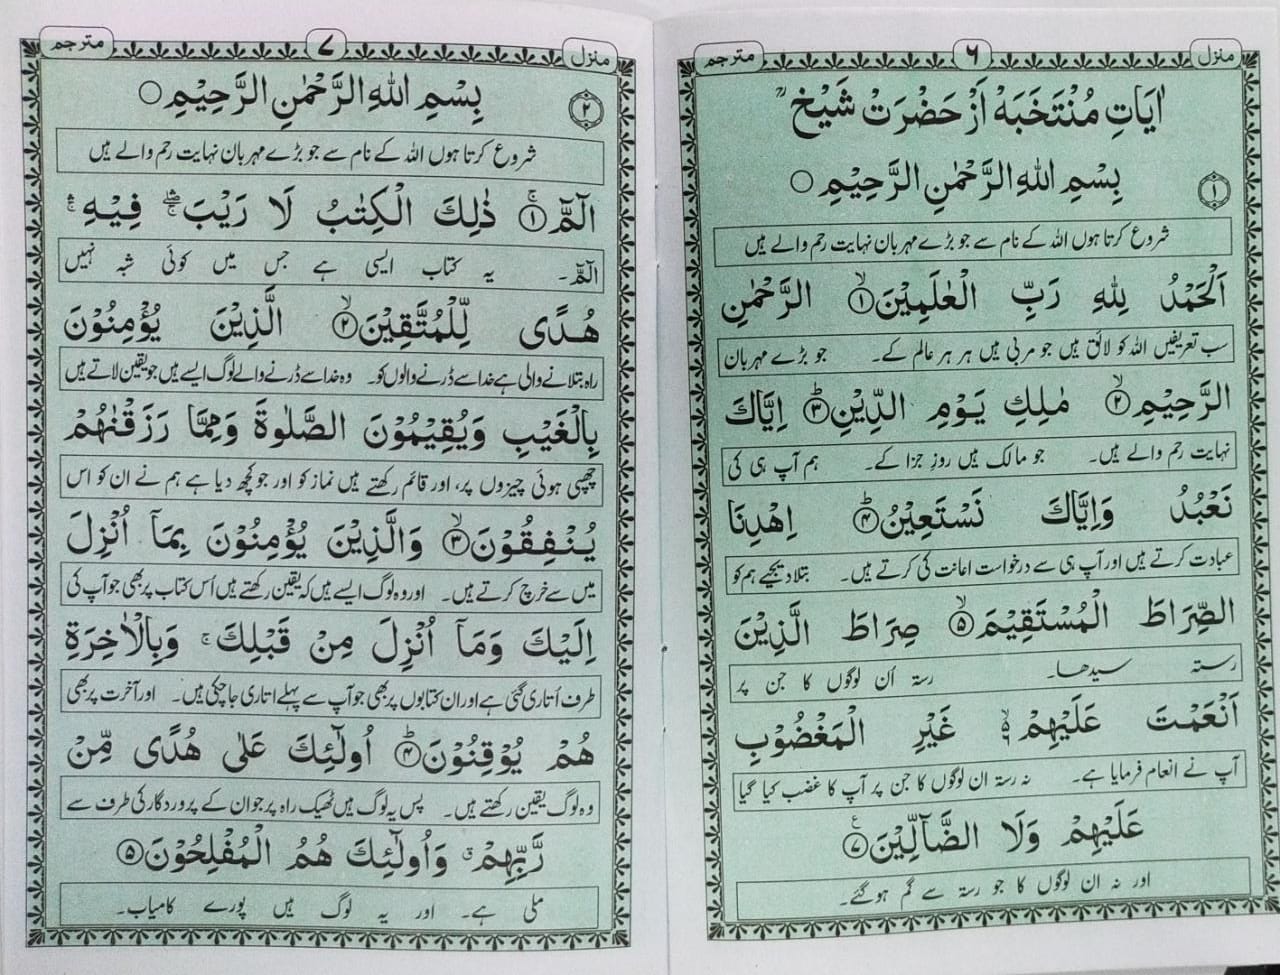 منزل ٦ مترجم
اٰيَاتِ مُنْتَخَبَهْ اَزْ حَضْرَتْ شَيْخْ ؒ
١
بِسْمِ اللهِ الرَّحْمٰنِ الرَّحِيْمِ ○
شروع کرتا ہوں اللہ کے نام سے جو بڑے مہربان نہایت رحم والے ہیں
اَلْحَمْدُ لِلّٰهِ رَبِّ الْعٰلَمِيْنَ ۙ﴿١﴾ الرَّحْمٰنِ
سب تعریفیں اللہ کو لائق ہیں جو مربی ہیں ہر ہر عالم کے۔ جو بڑے مہربان
الرَّحِيْمِ ۙ﴿٢﴾ مٰلِكِ يَوْمِ الدِّيْنِ ؕ﴿٣﴾ اِيَّاكَ
نہایت رحم والے ہیں۔ جو مالک ہیں روزِ جزا کے۔ ہم آپ ہی کی
نَعْبُدُ وَاِيَّاكَ نَسْتَعِيْنُ ؕ﴿٤﴾ اِهْدِنَا
عبادت کرتے ہیں اور آپ ہی سے درخواست اعانت کی کرتے ہیں۔ بتلا دیجیے ہم کو
الصِّرَاطَ الْمُسْتَقِيْمَ ۙ﴿٥﴾ صِرَاطَ الَّذِيْنَ
رستہ سیدھا۔ رستہ اُن لوگوں کا جن پر
اَنْعَمْتَ عَلَيْهِمْ ۙ۬ غَيْرِ الْمَغْضُوْبِ
آپ نے انعام فرمایا ہے۔ نہ رستہ ان لوگوں کا جن پر آپ کا غضب کیا گیا
عَلَيْهِمْ وَلَا الضَّآلِّيْنَ ﴿٧﴾ ع
اور نہ ان لوگوں کا جو رستہ سے گم ہو گئے۔
منزل ٧ مترجم
٢
بِسْمِ اللهِ الرَّحْمٰنِ الرَّحِيْمِ ○
شروع کرتا ہوں اللہ کے نام سے جو بڑے مہربان نہایت رحم والے ہیں
الٓمّٓ ۚ﴿١﴾ ذٰلِكَ الْكِتٰبُ لَا رَيْبَ ۛۖۚ فِيْهِ ۛ
الٓمّٓ۔ یہ کتاب ایسی ہے جس میں کوئی شبہ نہیں
هُدًى لِّلْمُتَّقِيْنَ ۙ﴿٢﴾ الَّذِيْنَ يُؤْمِنُوْنَ
راہ بتلانے والی ہے خدا سے ڈرنے والوں کو۔ وہ خدا سے ڈرنے والے لوگ ایسے ہیں جو یقین لاتے ہیں
بِالْغَيْبِ وَيُقِيْمُوْنَ الصَّلٰوةَ وَمِمَّا رَزَقْنٰهُمْ
چھپی ہوئی چیزوں پر، اور قائم رکھتے ہیں نماز کو اور جو کچھ دیا ہے ہم نے ان کو اس
يُنْفِقُوْنَ ۙ﴿٣﴾ وَالَّذِيْنَ يُؤْمِنُوْنَ بِمَآ اُنْزِلَ
میں سے خرچ کرتے ہیں۔ اور وہ لوگ ایسے ہیں کہ یقین رکھتے ہیں اُس کتاب پر بھی جو آپ کی
اِلَيْكَ وَمَآ اُنْزِلَ مِنْ قَبْلِكَ ۚ وَبِالْاٰخِرَةِ
طرف اُتاری گئی ہے اور ان کتابوں پر بھی جو آپ سے پہلے اتاری جا چکی ہیں۔ اور آخرت پر بھی
هُمْ يُوْقِنُوْنَ ؕ﴿٤﴾ اُولٰٓئِكَ عَلٰى هُدًى مِّنْ
وہ لوگ یقین رکھتے ہیں۔ پس یہ لوگ ہیں ٹھیک راہ پر جو ان کے پروردگار کی طرف سے
رَّبِّهِمْ ۗ وَاُولٰٓئِكَ هُمُ الْمُفْلِحُوْنَ ﴿٥﴾
ملی ہے۔ اور یہ لوگ ہیں پورے کامیاب۔